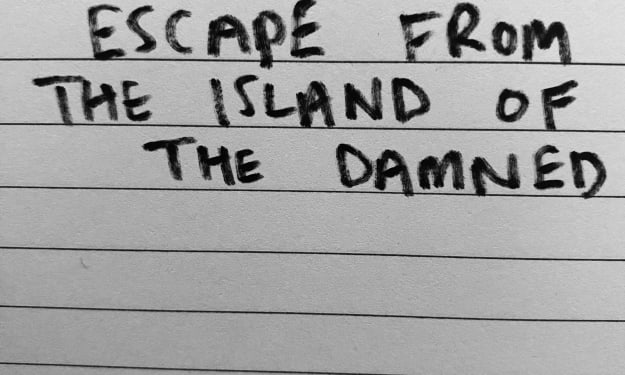 ESCAPE FROM
THE ISLAND OF
THE DAMNED